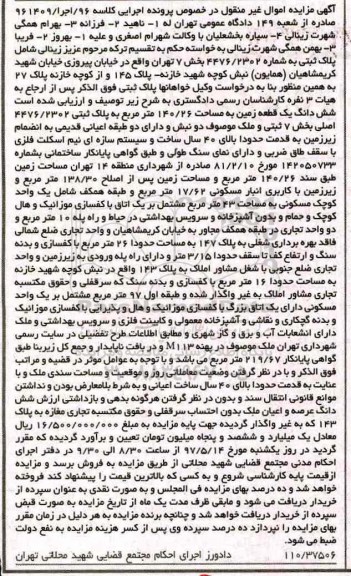 آگهی مزایده اموال غیر منقول در خصوص پرونده اجرایی کلاسه ۹۶/اجرا/۹۶۱۴۰۹
صادره از شعبه ۱۴۹ دادگاه عمومی تهران له ۱- ناهید ۲- فرزانه ۳- بهرام همگی
شهرت زینالی ۴- سپاره بخشعلیان با وکالت شهرام اصغری و علیه ۱- بهروز ۲- فریبا
۳- بهمن همگی شهرت زینالی به خواسته حکم به تقسیم ترکه مرحوم عزیز زینالی شامل
پلاک ثبتی به شماره ۴۴۷۶/۲۳۰۲ بخش ۷ تهران واقع در خیابان پیروزی خیابان شهید
کریمشاهیان (همایون) نبش کوچه شهید خازنه- پلاک ۱۴۵ و از کوچه خازنه پلاک ۲۷
به همین منظور بنا به درخواست وکیل خواهانها پلاک ثبتی فوق الذکر پس از ارجاع به
هیات ۳ نفره کارشناسان رسمی دادگستری به شرح زیر توصیف و ارزیابی شده است
شش دانگ یک قطعه زمین به مساحت ۱۴۰/۲۶ متر مربع به پلاک ثبتی ۴۴۷۶/۲۳۰۲
اصلی بخش ۷ ثبتی و ملک موصوف دو نبش و دارای دو طبقه اعیانی قدیمی به انضمام
زیرزمین به قدمت حدودا بالای ۴۰ سال ساخت و سیستم سازه ای نیم اسکلت فلزی
با سقف طاق ضربی و دارای نمای سنگ طولی و طبق گواهی پایانکار ساختمانی بشماره
۱۴۲۰۵۰۷۳۳ مورخ ۸۱/۲/۱۰ صادره از شهرداری منطقه ۱۴ تهران مساحت زمین
طبق سند ۱۴۰/۲۶ متر مربع و مساحت زمین پس از اصلاح ۱۳۸/۳۰ متر مربع و
زیرزمین با کاربری انبار مسکونی ۱۷/۶۲ متر مربع و طبقه همکف شامل یک واحد
کوچک مسکونی به مساحت ۴۳ متر مربع مشتمل بر یک اتاق با کفسازی موزائیک و هال
کوچک و حمام و بدون آشپزخانه و سرویس بهداشتی در حیاط و راه پله ۱۰ متر مربع و
دو واحد تجاری در طبقه همکف مجاور به خیابان کریمشاهیان و واحد تجاری ضلع شمالی
فاقد بهره برداری شغلی به پلاک ۱۴۷ به مساحت حدودا ۲۶ متر مربع با کفسازی و بدنه
سنگ و ارتفاع کف تا سقف حدودا ۳/۱۵ متر و دارای راه پله ورودی به زیرزمین و واحد
تجاری ضلع جنوبی با شغل مشاور املاک به پلاک ۱۴۳ واقع در نبش کوچه شهید خازنه
به مساحت حدودا ۱۶ متر مربع با کفسازی و بدنه سنگ که سرقفلی و حقوق مکتسبه
تجاری مشاور املاک به غیر واگذار شده و طبقه اول ۹۷ متر مربع مشتمل بر یک واحد
مسکونی دارای یک اتاق بزرگ با کفسازی موزائیک و هال و پذیرایی با کفسازی موزائیک
و بدنه گچکاری و نقاشی و آشپزخانه معمولی و کابینت فلزی و سرویس بهداشتی و ملک
دارای انشعابات آب و برق و گاز شهری و مطابق اطلاعات طرح تفصیلی در سایت رسمی
شهرداری تهران ملک موصوف در پهنه M۱۱۳ و در بافت ناپایدار و جمع کل زیربنا طبق
گواهی پایانکار ۲۱۹/۶۷ متر مربع می باشد و با توجه به عوامل موثر در قضیه و مراتب
فوق الذکر و با در نظر گرفتن وضعیت معاملاتی روز و موقعیت و مساحت سندی ملک و با
عنایت به قدمت حدودا بالای ۴۰ سال ساخت اعیانی و به شرط بلامعارض بودن و نداشتن
موانع قانونی انتقال سند و بدون در نظر گرفتن هرگونه بدهی و بازداشتی ارزش شش
دانگ عرصه و اعیان ملک بدون احتساب سرقفلی و حقوق مکتسبه تجاری مغازه به پلاک
۱۴۳ که به غیر واگذار گردیده جهت پایه مزایده به مبلغ ۱۶/۵۰۰/۰۰۰/۰۰۰ ریال
معادل یک میلیارد و ششصد و پنجاه میلیون تومان تعیین و برآورد گردیده که مقرر
گردید در روز یکشنبه مورخ ۹۷/۵/۱۴ از ساعت ۸/۳۰ الی ۹/۳۰ در دفتر اجرای
احکام مدنی مجتمع قضایی شهید محلاتی از طریق مزایده به فروش برسد و مزایده
ازقیمت پایه کارشناسی شروع و به کسی که بالاترین قیمت را پیشنهاد کند فروخته
خواهد شد و ده درصد بهای مزایده فی المجلس و به صورت نقدی به عنوان سپرده از
خریدار دریافت می شود و مابقی ظرف مدت یک ماه از تاریخ مزایده به صورت قبض
سپرده از خریدار دریافت خواهد شد و چنانچه برنده مزایده به هر دلیل در زمان مقرر
بهای مزایده را نپردازد ده درصد سپرده وی پس از کسر هزینه مزایده به نفع دولت
ضبط می شود.
۱۱۰/۳۷۵۰۶ دادورز اجرای احکام مجتمع قضایی شهید محلاتی تهران